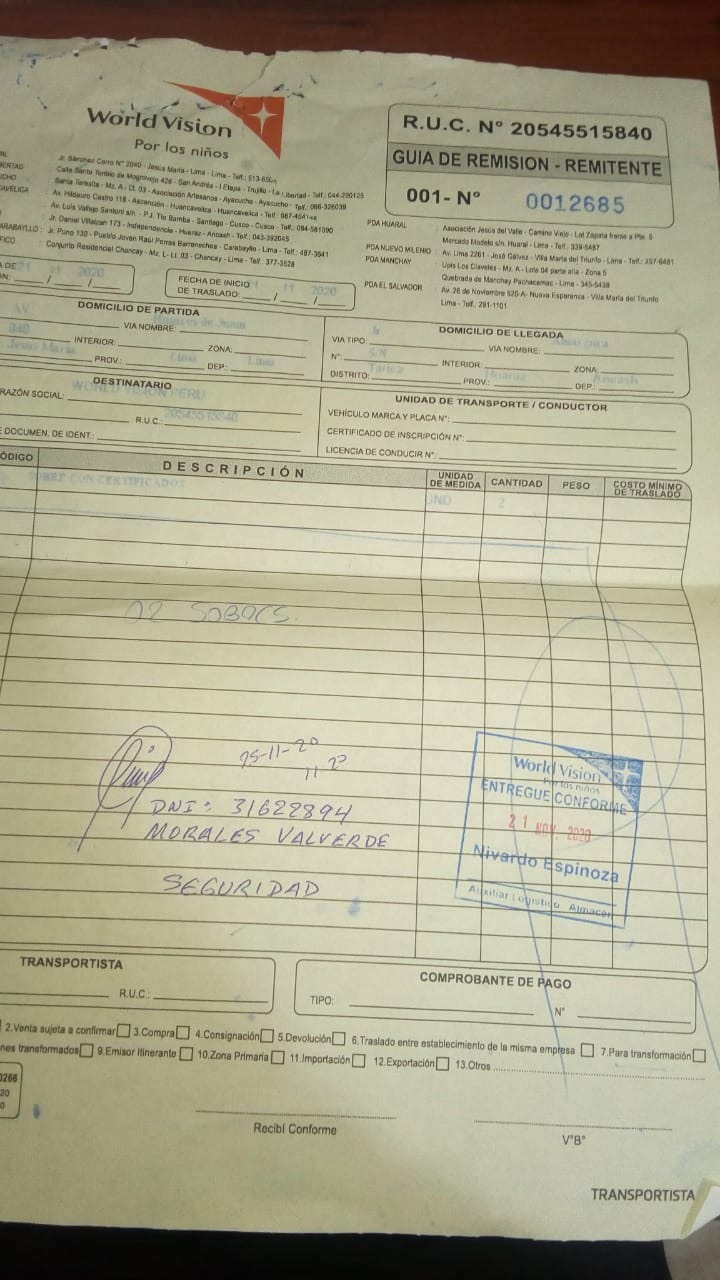 World Vision
Por los niños
Jr. Sánchez Cerro N° 2040 - Jesús María - Lima - Lima - Telf.: 513-
Calle Santo Toribio de Mogrovejo 426 - San Andrés - I Etapa - Trujillo - La Libertad - Telf.: 044-290125
Santa Teresita - Mz. A - Lt. 03 - Asociación Artesanos - Ayacucho - Ayacucho - Telf.: 066-326039
Av. Hildauro Castro 118 - Ascención - Huancavelica - Huancavelica - Telf.:
Av. Luis Vallejo Santoni s/n - P.J. Tío Bamba - Santiago - Cusco - Cusco - Telf.:
Jr. Daniel Villaizan 173 - Independencia - Huaraz - Ancash - Telf.: 043-392045
CARABAYLLO : Jr. Puno 130 - Pueblo Joven Raúl Porras Barrenechea - Carabayllo - Lima - Telf.:
Conjunto Residencial Chancay - Mz. L- Lt. 03 - Chancay - Lima - Telf.: 377-3528
R.U.C. N° 20545515840
GUIA DE REMISION - REMITENTE
001- N° 0012685
PDA HUARAL : Asociación Jesús del Valle - Camino Viejo - Lot Zapata frente a Pte. 5
Mercado Modelo s/n. Huaral - Lima - Telf.: 339-5487
PDA NUEVO MILENIO : Av. Lima 2261 - José Gálvez - Villa María del Triunfo - Lima - Telf.: 257-6481
PDA MANCHAY : Upis Los Claveles - Mz. A - Lote 04 parte alta - Zona 5
Quebrada de Manchay Pachacamac - Lima - 345-5438
PDA EL SALVADOR : Av. 26 de Noviembre 520-A- Nueva Esperanza - Villa María del Triunfo
Lima - Telf.: 291-1101
21 11 2020
FECHA DE INICIO DE TRASLADO: 11 2020
DOMICILIO DE PARTIDA
AV VIA NOMBRE: Húsares de Junín
INTERIOR: ZONA:
Jesus Maria PROV.: Lima DEP.: Lima
DOMICILIO DE LLEGADA
VIA TIPO: Jr VIA NOMBRE:
N°: S/N INTERIOR: ZONA:
DISTRITO: Tarica PROV.: Huaraz DEP.: Ancash
DESTINATARIO
RAZÓN SOCIAL: WORLD VISION PERU
R.U.C.: 20545515840
DOCUMEN. DE IDENT.:
UNIDAD DE TRANSPORTE / CONDUCTOR
VEHÍCULO MARCA Y PLACA N°:
CERTIFICADO DE INSCRIPCIÓN N°:
LICENCIA DE CONDUCIR N°:
DESCRIPCIÓN UNIDAD DE MEDIDA CANTIDAD PESO COSTO MÍNIMO DE TRASLADO
SOBRE CON CERTIFICADOS UND 2
02 SOBRES.
25-11-20
DNI: 31622894
MORALES VALVERDE
SEGURIDAD
World Vision
Por los niños
ENTREGUE CONFORME
21 NOV. 2020
Nivardo Espinoza
Auxiliar Logístico Almacen
TRANSPORTISTA
R.U.C.:
COMPROBANTE DE PAGO
TIPO: N°
2.Venta sujeta a confirmar 3.Compra 4.Consignación 5.Devolución 6.Traslado entre establecimiento de la misma empresa 7.Para transformación
transformados 9.Emisor Itinerante 10.Zona Primaria 11.Importación 12.Exportación 13.Otros
Recibí Conforme
V°B°
TRANSPORTISTA